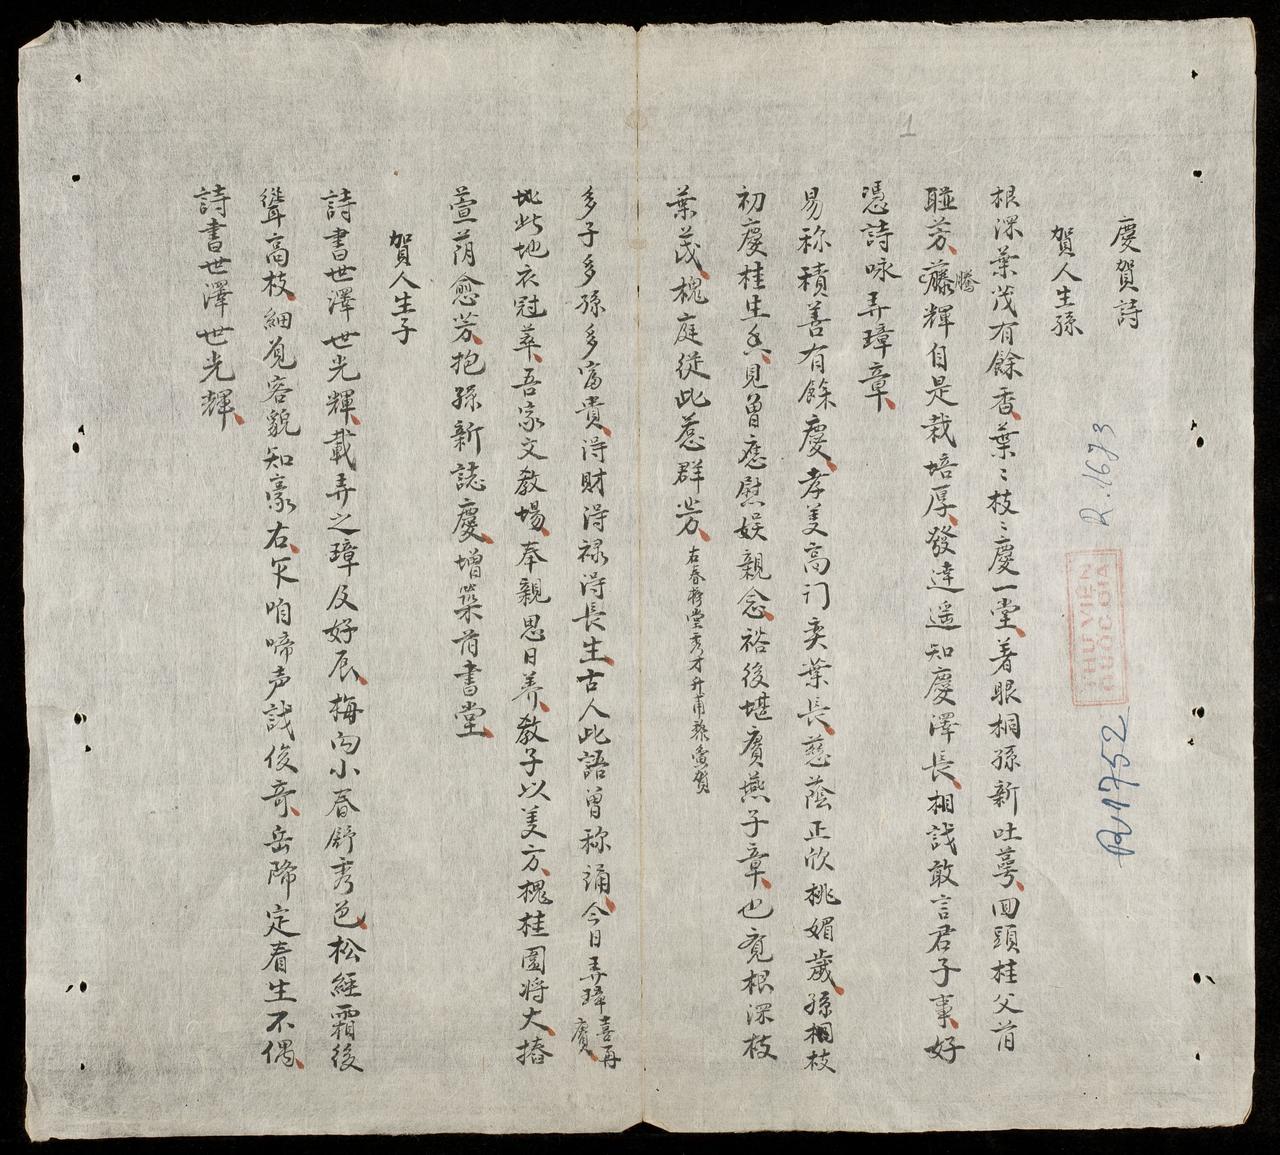 慶賀詩
賀人生孫
根深葉茂有餘香葉〻枝〻慶一堂着眼桐孫新吐萼回頭桂父前
聯芳藤騰輝自是栽培厚發達遥知慶澤長相誠敢言君子事好
憑詩咏弄璋章
易称積善有餘慶孝美高门奕葉長慈蔭正欣桃媚歲孫桐枝
初慶桂生香見曾應慰娛親念裕後堪賡燕子章也覔根深枝
葉茂槐庭從此惹群芳 右春精堂秀才升甫黎賀
多子多孫多富貴得財得禄得長生古人此語曾称誦今日弄璋喜再賡
地此地衣冠萃吾家文教場奉親思日養教子以美方槐桂園将大椿
萱荫愈芳抱孫新誌慶增築前書堂
賀人生子
詩書世澤世光輝載弄之璋及好辰梅向小春舒秀色松經霜後
聳高枝細覓容貌知豪右乍咱啼声誠俊奇岳降定看生不偶
詩書世澤世光輝
1
R.1693
THƯ VIỆN
QUỐC GIA
R1752